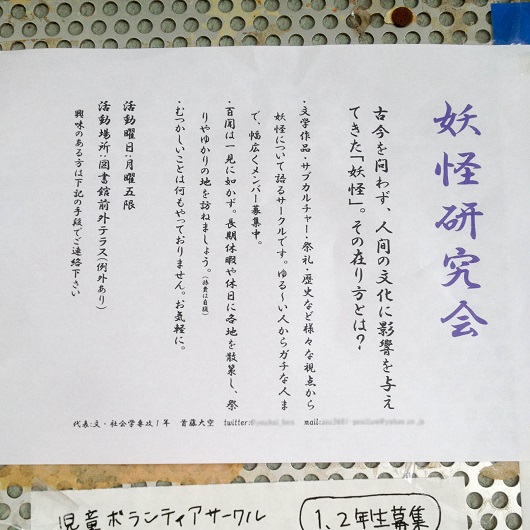 妖怪研究会
古今を問わず、人間の文化に影響を与え
てきた「妖怪」。その在り方とは？
・文学作品・サブカルチャー・祭礼・歴史など様々な視点から
妖怪について語るサークルです。ゆる〜い人からガチな人ま
で、幅広くメンバー募集中。
・百聞は一見に如かず。長期休暇や休日に各地を散策し、祭
りやゆかりの地を訪ねましょう。(旅費は自腹)
・むつかしいことは何もやっておりません。お気軽に。
活動曜日:月曜五限
活動場所:図書館前外テラス(例外あり)
興味のある方は下記の手段でご連絡下さい
代表:文・社会学専攻1年 首藤大空 twitter: mail:
児童ボランティアサークル
1、2年生募集